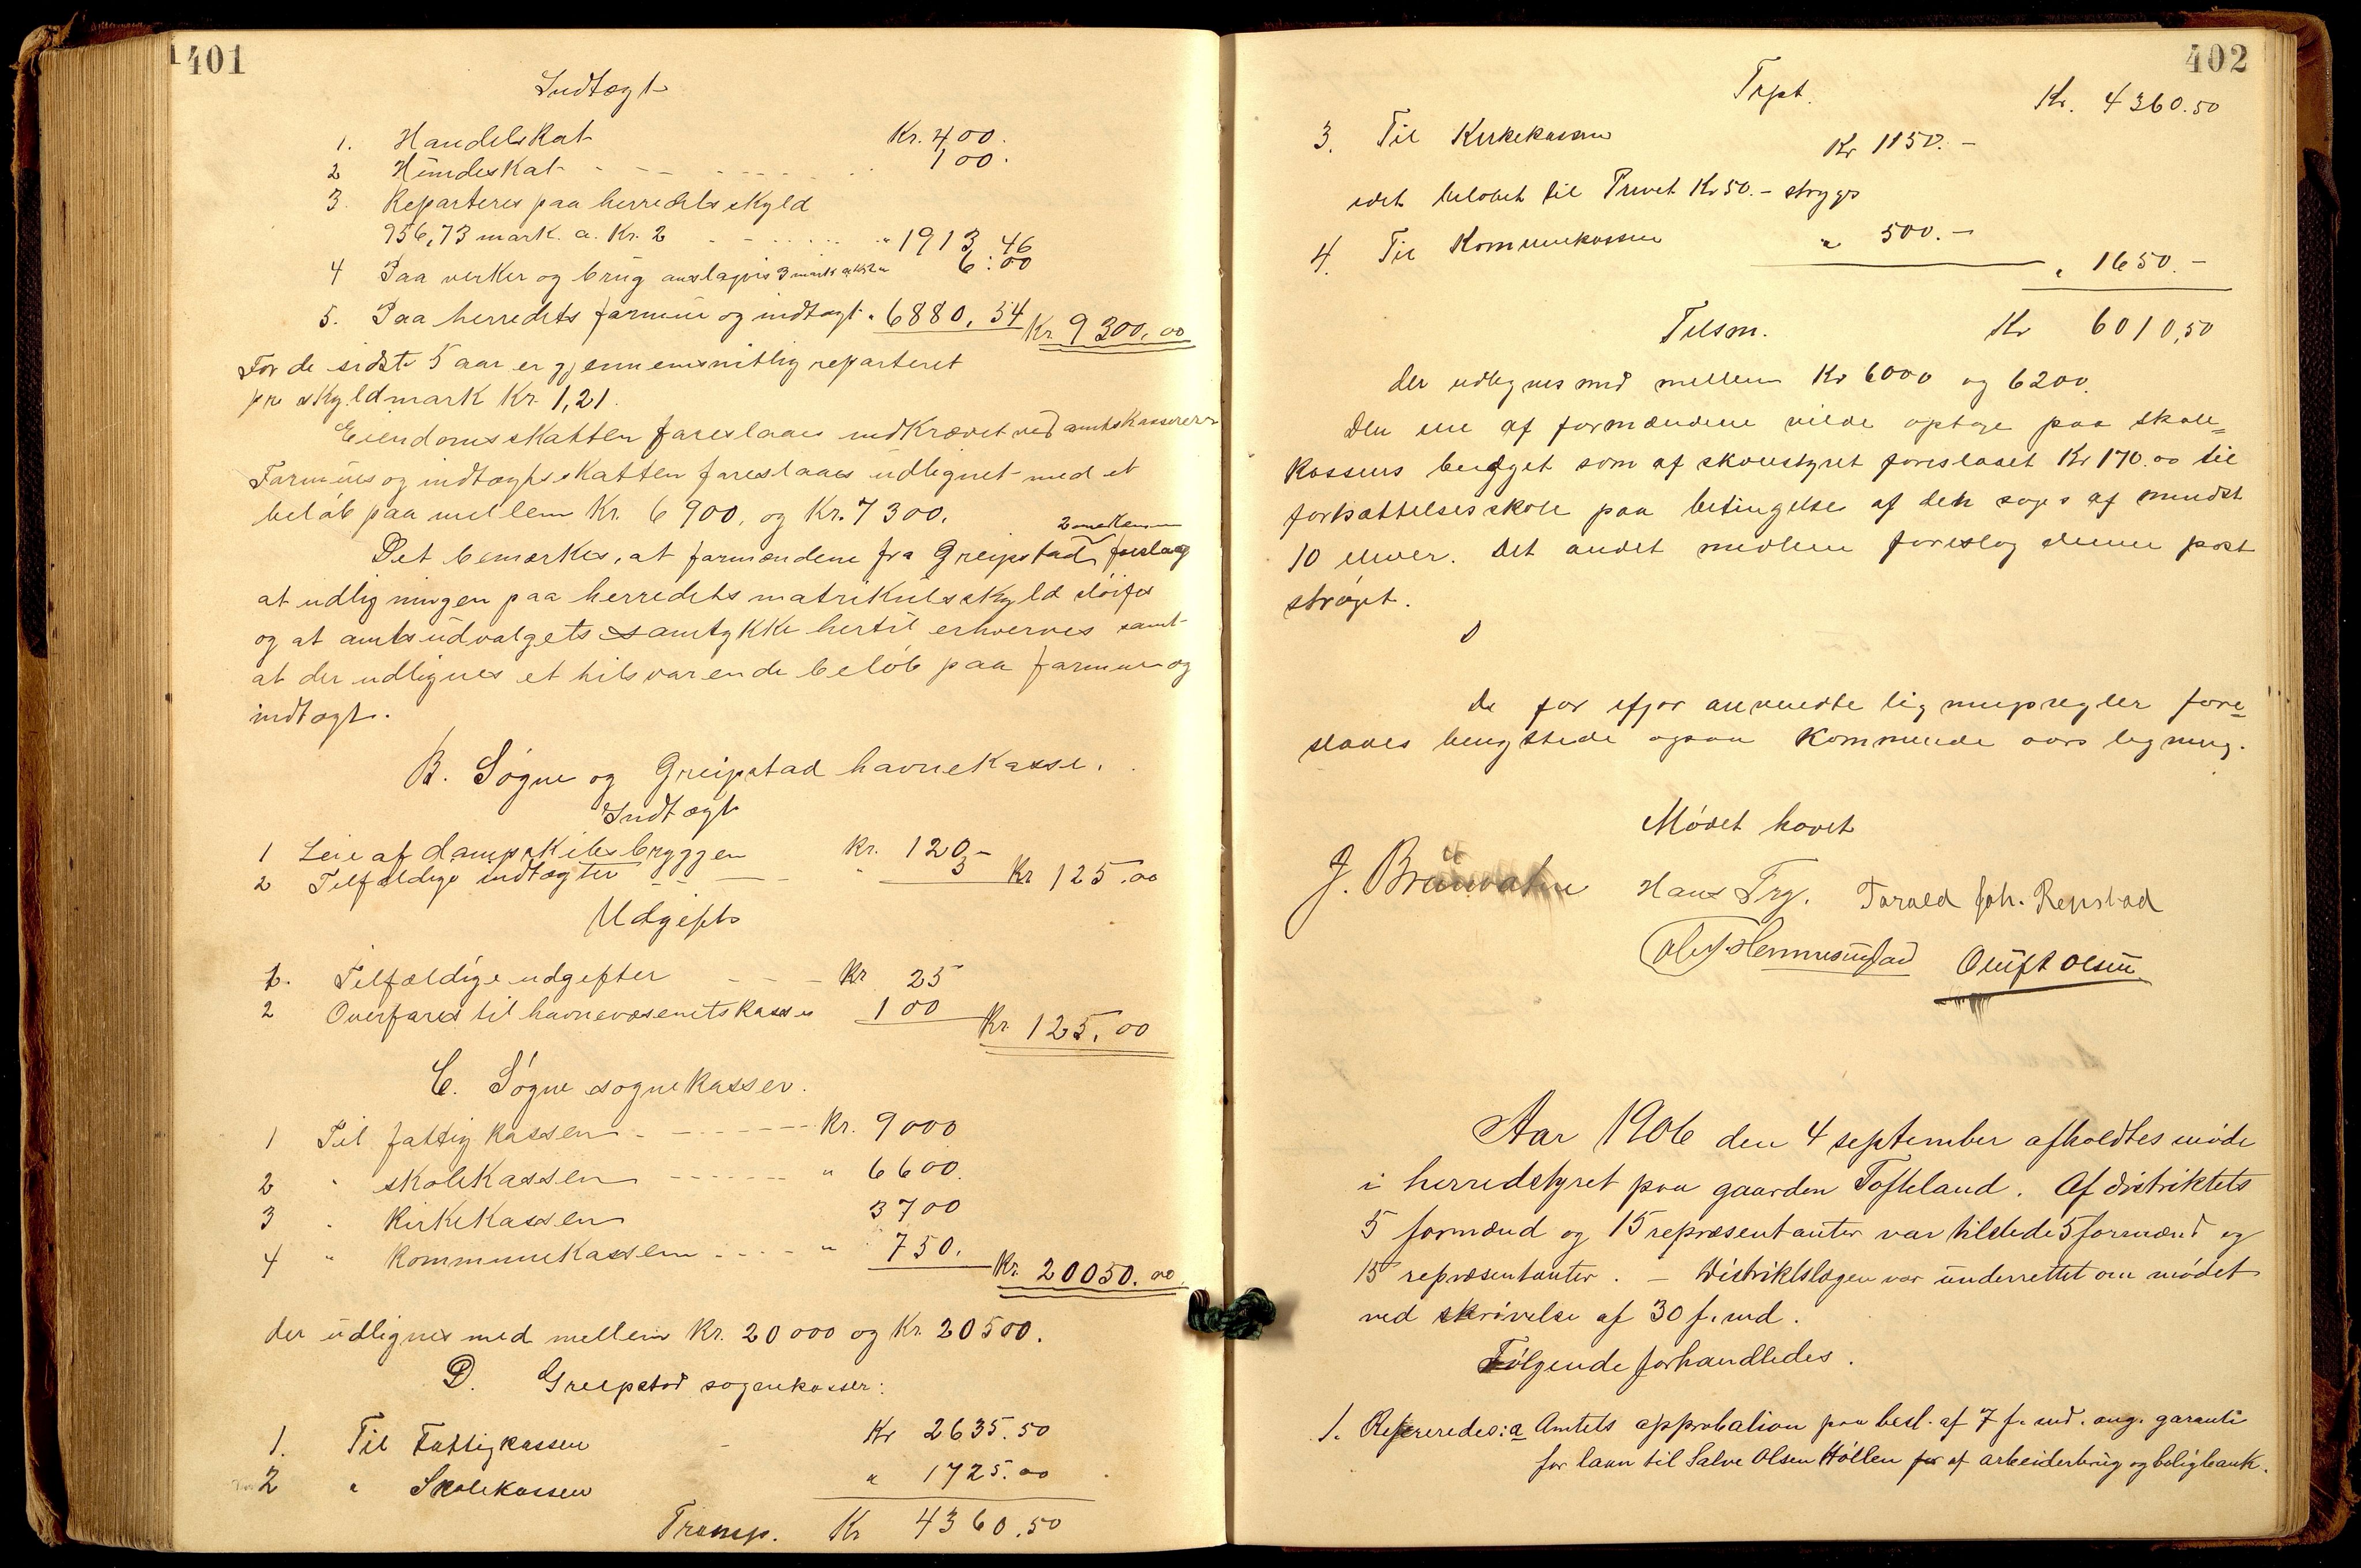 401
Indtægt
1. Handelskat Kr. 400.
2 Hundeskat - - - - - - - 100.
3. Reparteres paa herredets skyld
956,73 mark. a. Kr. 2 - - - - - " 1913,46
4 Paa verker og brug anslagvis 3 mark a Kr 2 " 6:00
5. Paa herredets formue og indtægt " 6880,54 Kr. 9300,00
For de sidste 5 aar er gjennemsnitlig reparteret
pr skyldmark Kr. 1,21.
Eiendomsskatten foreslaaes indkrævet ved amtskasserer
Formues og indtægtsskatten foreslaaes udlignet med et
beløb paa mellem Kr. 6900, og Kr. 7300.
2 medlemmer
Det bemærkes, at formændene fra Greipstad foreslog
at udligningen paa herredets matrikulsskyld sløifes
og at amtsudvalgets samtykke hertil erhverves samt
at der udlignes et tilsvarende beløb paa formue og
indtægt.
B. Søgne og Greipstad havnekasse.
Indtægt
1 Leie af dampskibsbryggen Kr. 120 -
2 Tilfældige indtægter - - - " 5 Kr 125.00
Udgift
1. Tilfældige udgifter - - - Kr 25
2 Overføres til havnevæsenets kasse 100 Kr 125.00
C. Søgne sognekasser.
1 Til fattigkassen - - - - - - - Kr. 9000
2 " skolekassen - - - - - - - " 6600.
3 " Kirkekassen 3700
4 " Kommunekassen - - - - " 750. Kr. 20050.00
der udlignes med mellem Kr. 20000 og Kr. 20500.
D. Greipstad sognekasser:
1. Til Fattigkassen - Kr 2635.50
2 " Skolekassen " 1725.00
Transp. Kr 4360.50
402
Trpt. Kr. 4360.50
3. Til Kirkekassen Kr 1150. -
idet beløbet til Privet Kr 50. - stryges
4. Til Kommunekassen " 500. - " 1650. -
Tilsm. Kr 6010,50
der udlignes med mellem Kr 6000 og 6200.
Den ene af formændene vilde optage paa skole=
kassens budget som af skolestyret foreslaaet Kr 170.00 til
fortsættelsesskole paa betingelse af den søges af mindst
10 elever. Det andet medlem foreslog denne post
strøget.
De for ifjor anvendte ligningsregler fore=
slaaes benyttede ogsaa kommende aars ligning.
Mødet hævet
J. Bråuvatne Hans Try. Torald Joh. Repstad
Olaf Hennesmyrad Oluf T Olsen
Aar 1906 den 4 september afholdtes møde
i herredstyret paa gaarden Tofteland. Af distriktets
5 formænd og 15 repræsentanter var tilstede 5 formænd og
15 repræsentanter. - Distriktslægen var underrettet om mødet
ved skrivelse af 30 f. md.
Følgende forhandledes.
1. Refereredes: a Amtets approbation paa besl. af 7 f. md. ang. garanti
for laan til Salve Olsen Høllen for af arbeiderbrug og boligbank.